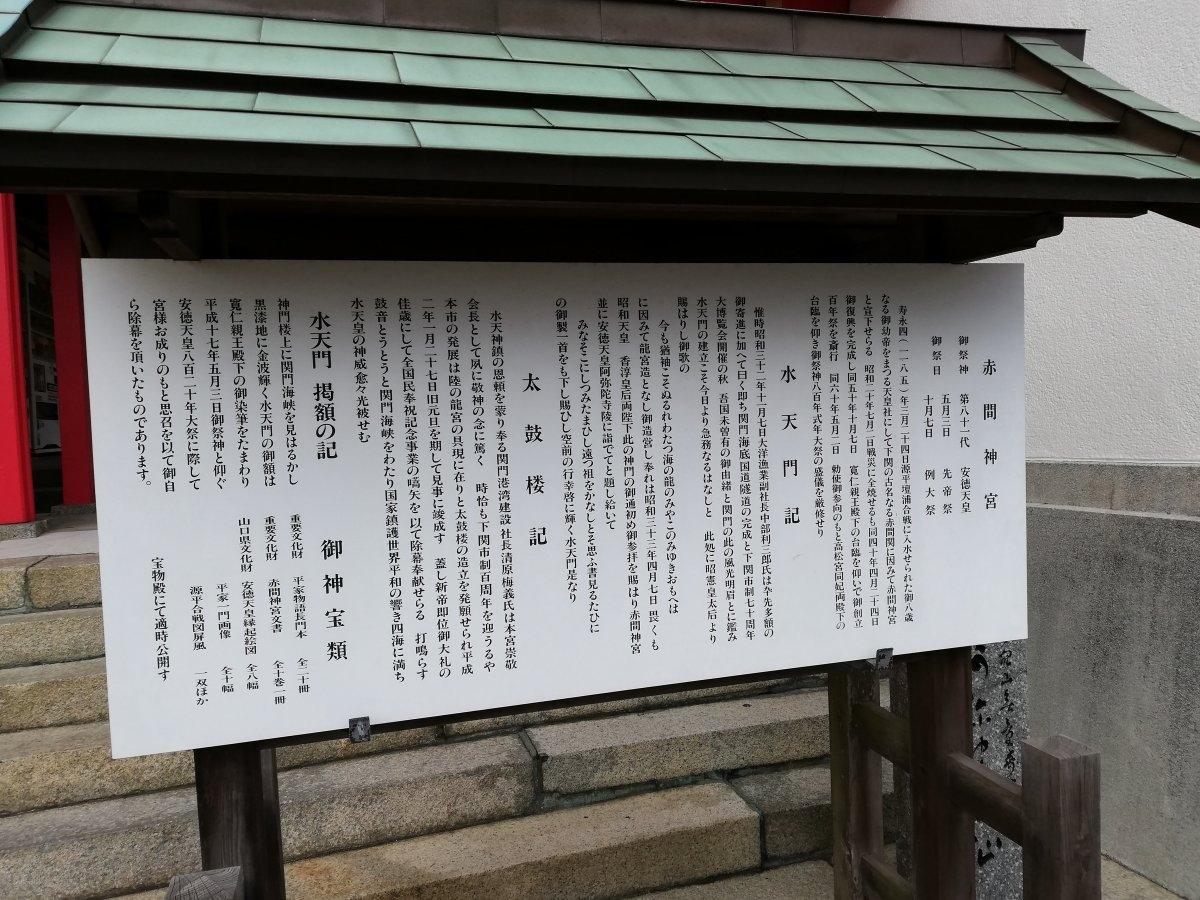 赤間神宮
御祭神　第八十一代　安徳天皇
御祭日　五月三日　先帝祭
十月七日　例大祭
寿永四（一一八五）年三月二十四日源平壇浦合戦に入水せられた御八歳
なる御幼帝をまつる天皇社にして下関の古名なる赤間関に因みて赤間神宮
と宣下せらる　昭和二十年七月二日戦災に全焼せるも同四十年四月二十四日
御復興を完成し同五十年十月七日　寛仁親王殿下の台臨を仰いで御創立
百年祭を斎行　同六十年五月二日　勅使御参向のもと高松宮同妃両殿下の
台臨を仰き御祭神八百年式年大祭の盛儀を厳修せり
水天門記
惟時昭和三十二年十二月七日大洋漁業副社長中部利三郎氏は夲先多額の
御寄進に加へて曰く即ち関門海底国道隧道の完成と下関市制七十周年
大博覧会開催の秋　吾国未曽有の御由緒と関門の此の風光明眉とに鑑み
水天門の建立こそ今日より急務なるはなしと　此処に昭憲皇太后より
賜はりし御歌の
今も猶袖こそぬるれわたつ海の龍のみやこのみゆきおもへは
に因みて龍宮造となし御造営し奉れは昭和三十三年四月七日 畏くも
昭和天皇　香淳皇后両陛下此の神門の御通初め御参拝を賜はり赤間神宮
並に安徳天皇阿弥陀寺陵に詣でてと題し給いて
みなそこにしつみたまひし遠つ祖をかなしとそ思ふ書見るたひに
の御製一首をも下し賜ひし空前の行幸啓に輝く水天門是なり
太鼓楼記
水天神鎮の恩頼を蒙り奉る関門港湾建設 社長清原梅義氏は本宮崇敬
会長として夙に敬神の念に篤く　時恰も下関市制百周年を迎うるや
本市の発展は陸の龍宮の具現に在りと太鼓楼の造立を発願せられ平成
二年一月二十七日旧元旦を期して見事に竣成す　蓋し新帝即位御大礼の
佳歳にして全国民奉祝記念事業の嚆矢を 以て除幕奉献せらる　打鳴らす
鼓音とうとうと関門海峡をわたり国家鎮護世界平和の響き四海に満ち
水天皇の神威愈々光被せむ
水天門 掲額の記
神門楼上に関門海峡を見はるかし
黒漆地に金波輝く水天門の御額は
寛仁親王殿下の御染筆をたまわり
平成十七年五月三日御祭神と仰ぐ
安徳天皇八百二十年大祭に際して
宮様お成りのもと思召を以て御自
ら除幕を頂いたものであります。
御神宝類
重要文化財　平家物語長門本　全二十冊
重要文化財　赤間神宮文書　全十巻一冊
山口県文化財　安徳天皇縁起絵図　全八幅
平家一門画像　全十幅
源平合戦図屏風　一双ほか
宝物殿にて適時公開す